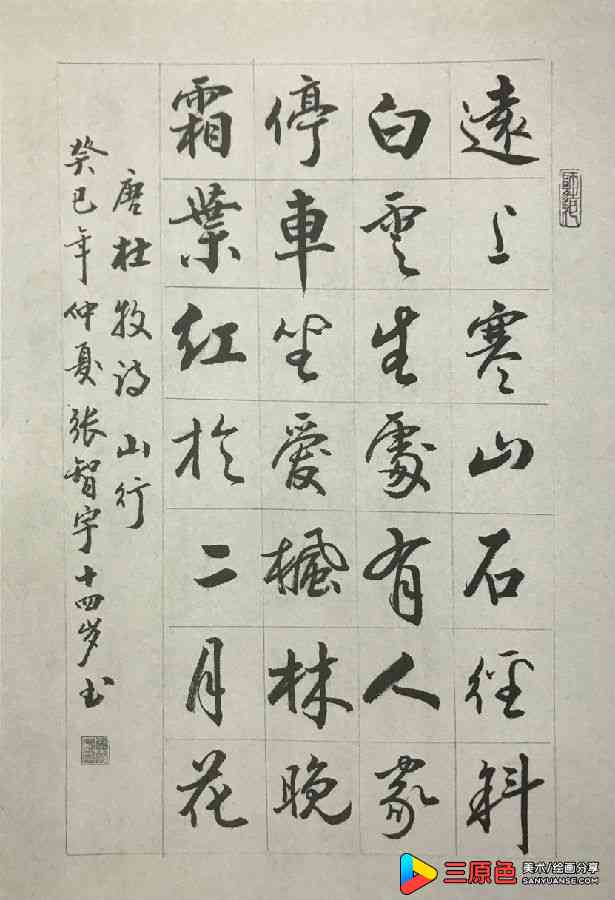 遠上寒山石徑斜
白雲生處有人家
停車坐愛楓林晚
霜葉紅於二月花
唐杜牧诗山行
癸巳年仲夏張智宇十四岁书
三原色
美术/绘画分享
SANYUANSE.COM